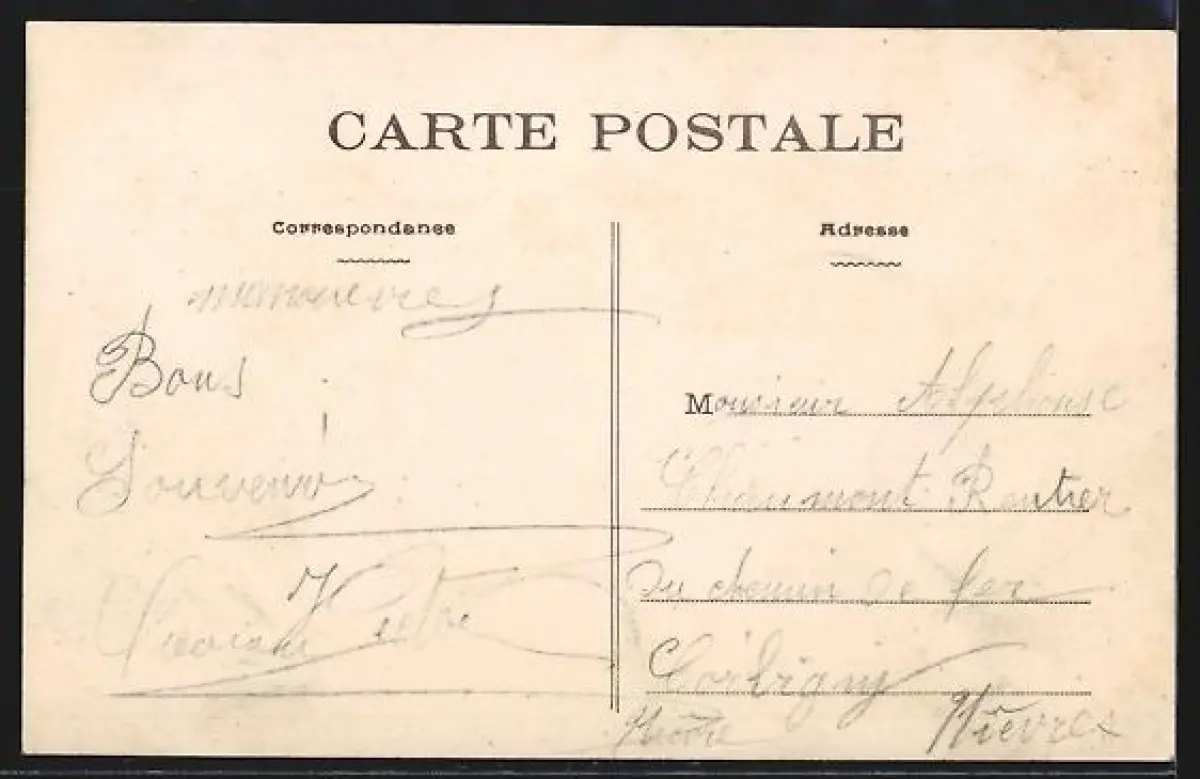 CARTE POSTALE
Correspondance
Adresse
Bons
Souvenir
Monsieur Alphonse
Chaumont Rentier
Du chemin de fer
Corbigny
Nièvre
Nièvres